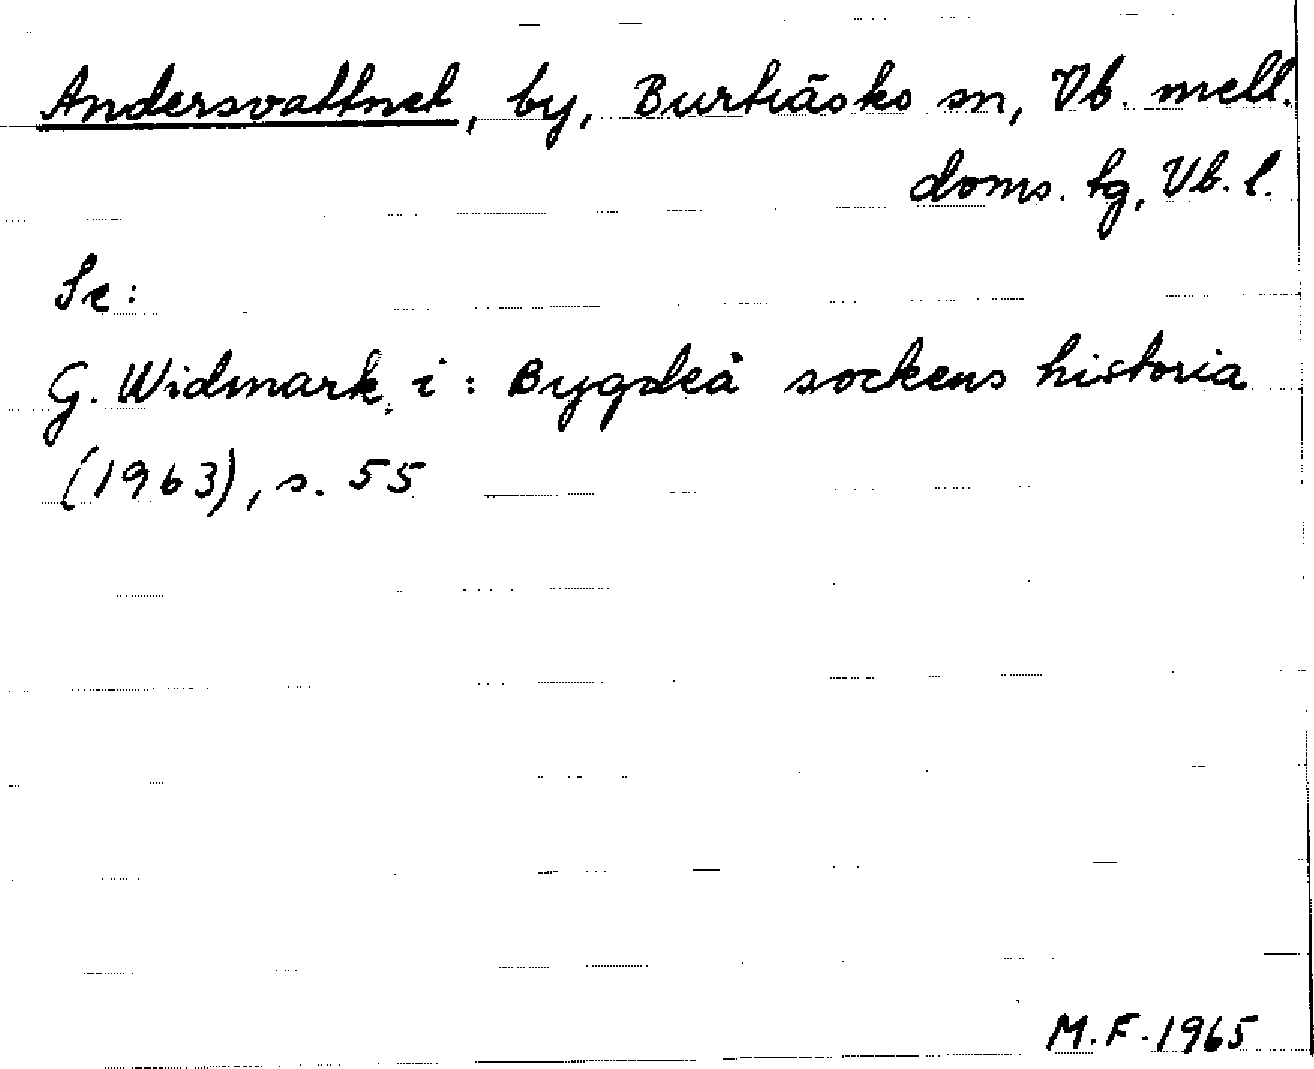 Andersvattnet, by, Burträsks sn, Vb. mell.
doms. tg, Vb. l.
Se:
G. Widmark, i: Bygdeå sockens historia
(1963), s. 55
M.F. 1965